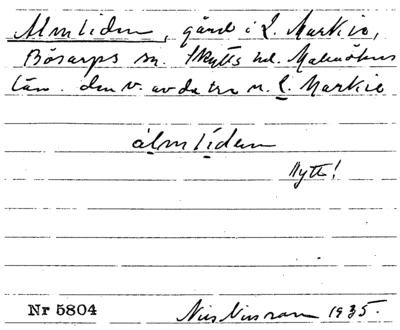 Almliden, gård i L. Markie,
Bösarps sn. Skytts hd. Malmöhus
län. den v. av de tre n. L. Markie
álmlídem
Nytt!
Nr 5804 Nils Nilsson 1935.